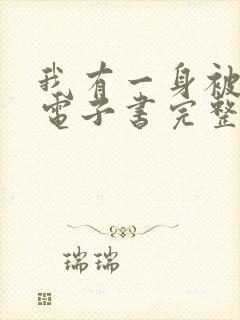 我有一身被
電子書完整
瑞瑞